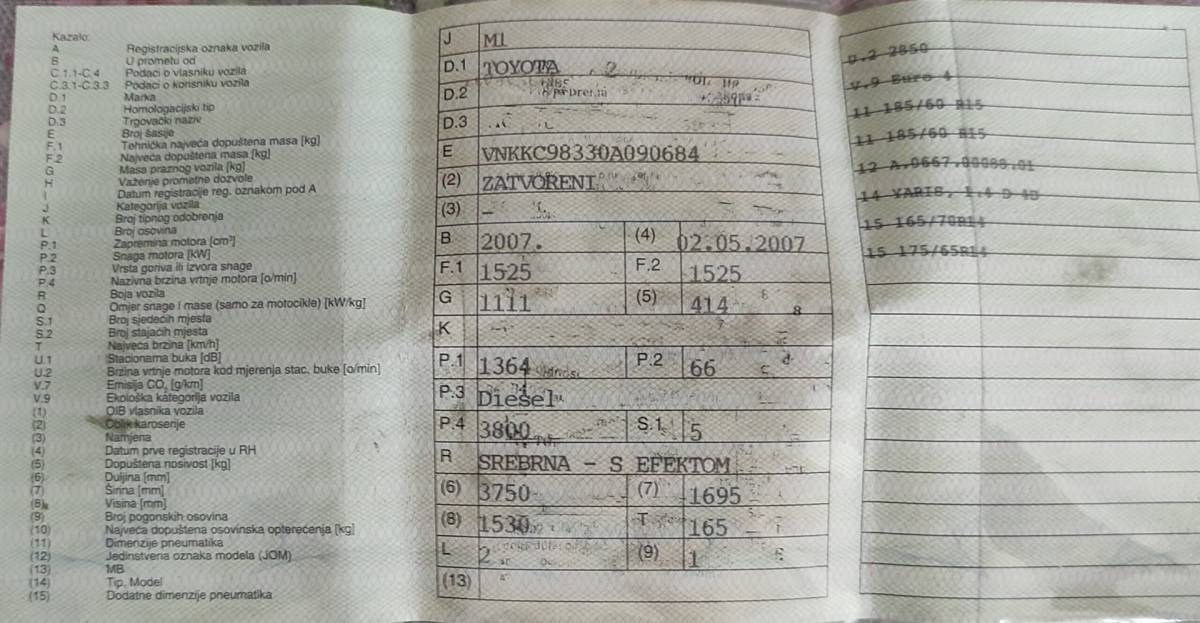 Kazalo:
A Registracijska oznaka vozila
B U prometu od
C.1.1-C.4 Podaci o vlasniku vozila
C.3.1-C.3.3 Podaci o korisniku vozila
D.1 Marka
D.2 Homologacijski tip
D.3 Trgovački naziv
E Broj šasije
F.1 Tehnička najveća dopuštena masa [kg]
F.2 Najveća dopuštena masa [kg]
G Masa praznog vozila [kg]
H Važenje prometne dozvole
I Datum registracije reg. oznakom pod A
J Kategorija vozila
K Broj tipnog odobrenja
L Broj osovina
P.1 Zapremina motora [cm³]
P.2 Snaga motora [kW]
P.3 Vrsta goriva ili izvora snage
P.4 Nazivna brzina vrtnje motora [o/min]
R Boja vozila
Q Omjer snage i mase (samo za motocikle) [kW/kg]
S.1 Broj sjedećih mjesta
S.2 Broj stajaćih mjesta
T Najveća brzina [km/h]
U.1 Stacionarna buka [dB]
U.2 Brzina vrtnje motora kod mjerenja stac. buke [o/min]
V.7 Emisija CO₂ [g/km]
V.9 Ekološka kategorija vozila
(1) OIB vlasnika vozila
(2) Oblik karoserije
(3) Namjena
(4) Datum prve registracije u RH
(5) Dopuštena nosivost [kg]
(6) Duljina [mm]
(7) Širina [mm]
(8) Visina [mm]
(9) Broj pogonskih osovina
(10) Najveća dopuštena osovinska opterećenja [kg]
(11) Dimenzije pneumatika
(12) Jedinstvena oznaka modela (JOM)
(13) MB
(14) Tip, Model
(15) Dodatne dimenzije pneumatika
J M1
D.1 TOYOTA
D.2
D.3
E VNKKC98330A090684
(2) ZATVORENI
(3) -
B 2007. (4) 02.05.2007
F.1 1525 F.2 1525
G 1111 (5) 414
K
P.1 1364 P.2 66
P.3 Diesel
P.4 3800 S.1 5
R SREBRNA - S EFEKTOM
(6) 3750 (7) 1695
(8) 1530 T 165
L 2 (9) 1
(13)
D.2 2850
V.9 Euro 4
11 185/60 R15
11 185/60 R15
12 A.0667.00088.01
14 YARIS, 1.4 D 4D
15 165/70R14
15 175/65R14